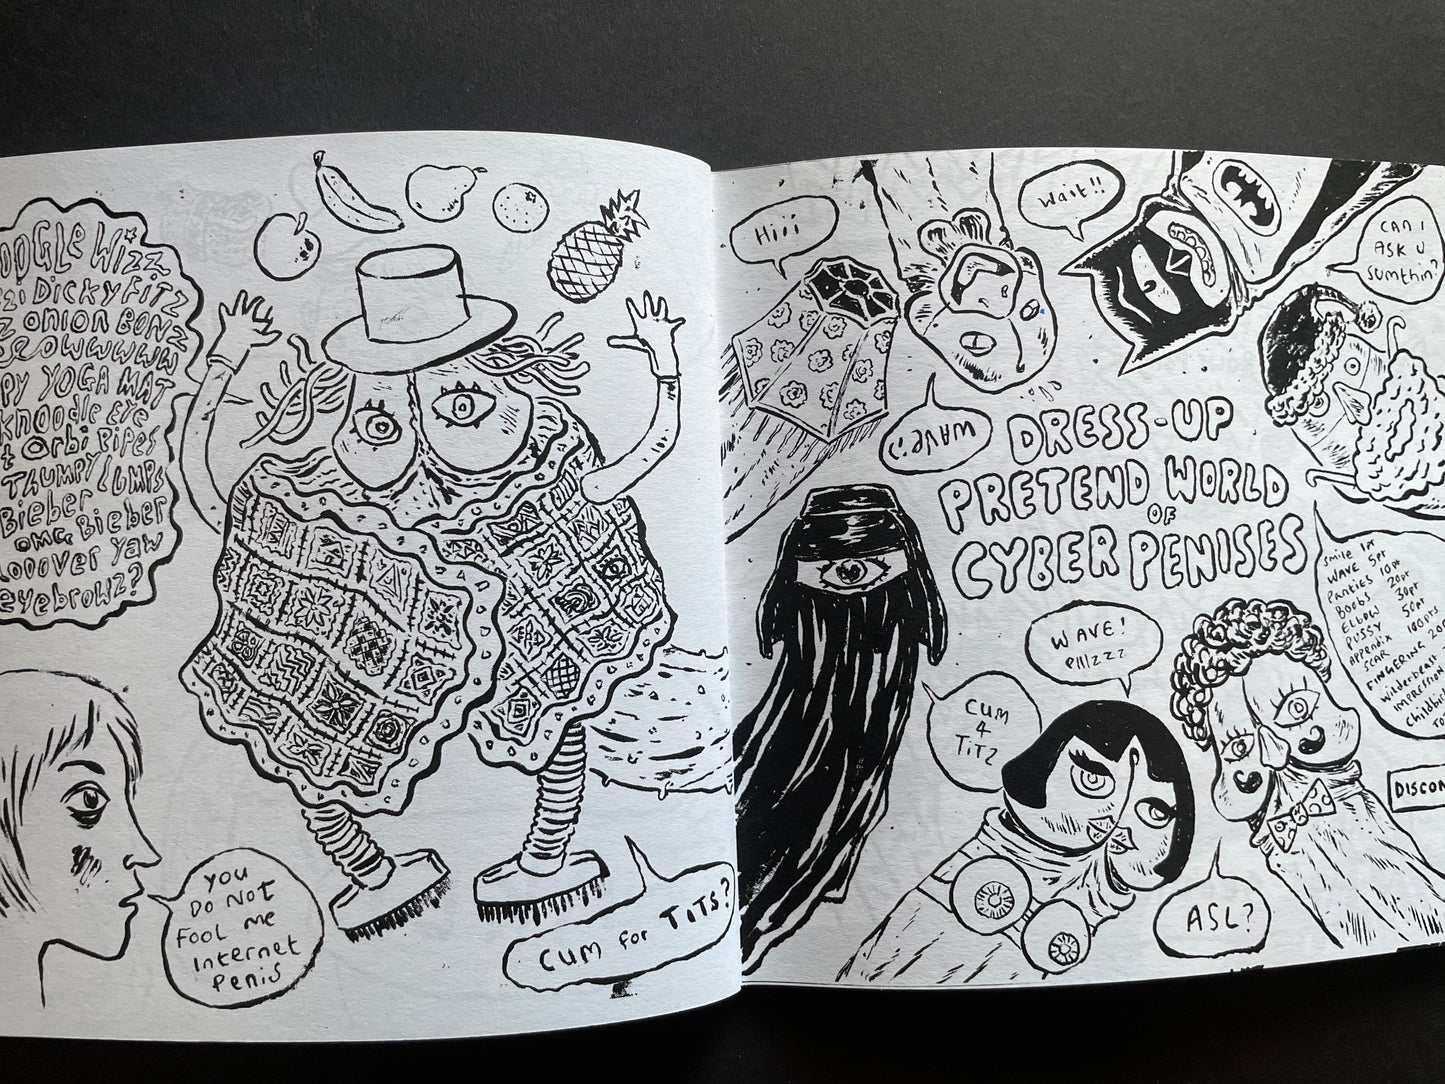 WIZZ
DICKY FITZ
ONION BONZ
YOGA MAT
KNOODLE EYE
Orbi PIPES
THUMPY LUMPS
Bieber
omG Bieber
LOOOVER YAW
eyebrowz?
YOU
DO NOT
FOOL me
Internet
Penis
CUM for TITS?
Hiii
Wait!!
CAN I
ASK U
SUMTHIN?
WAVE?
DRESS-UP
PRETEND WORLD
OF
CYBER PENISES
WAVE!
PLLLZZZZ
CUM
4
TITZ
ASL?
Smile 1pt
WAVE 5pt
Panties 10pt
Boobs 20pt
ELBOW 30pt
PUSSY 50pt
APPENDIX 100pts
SCAR
FINGERING